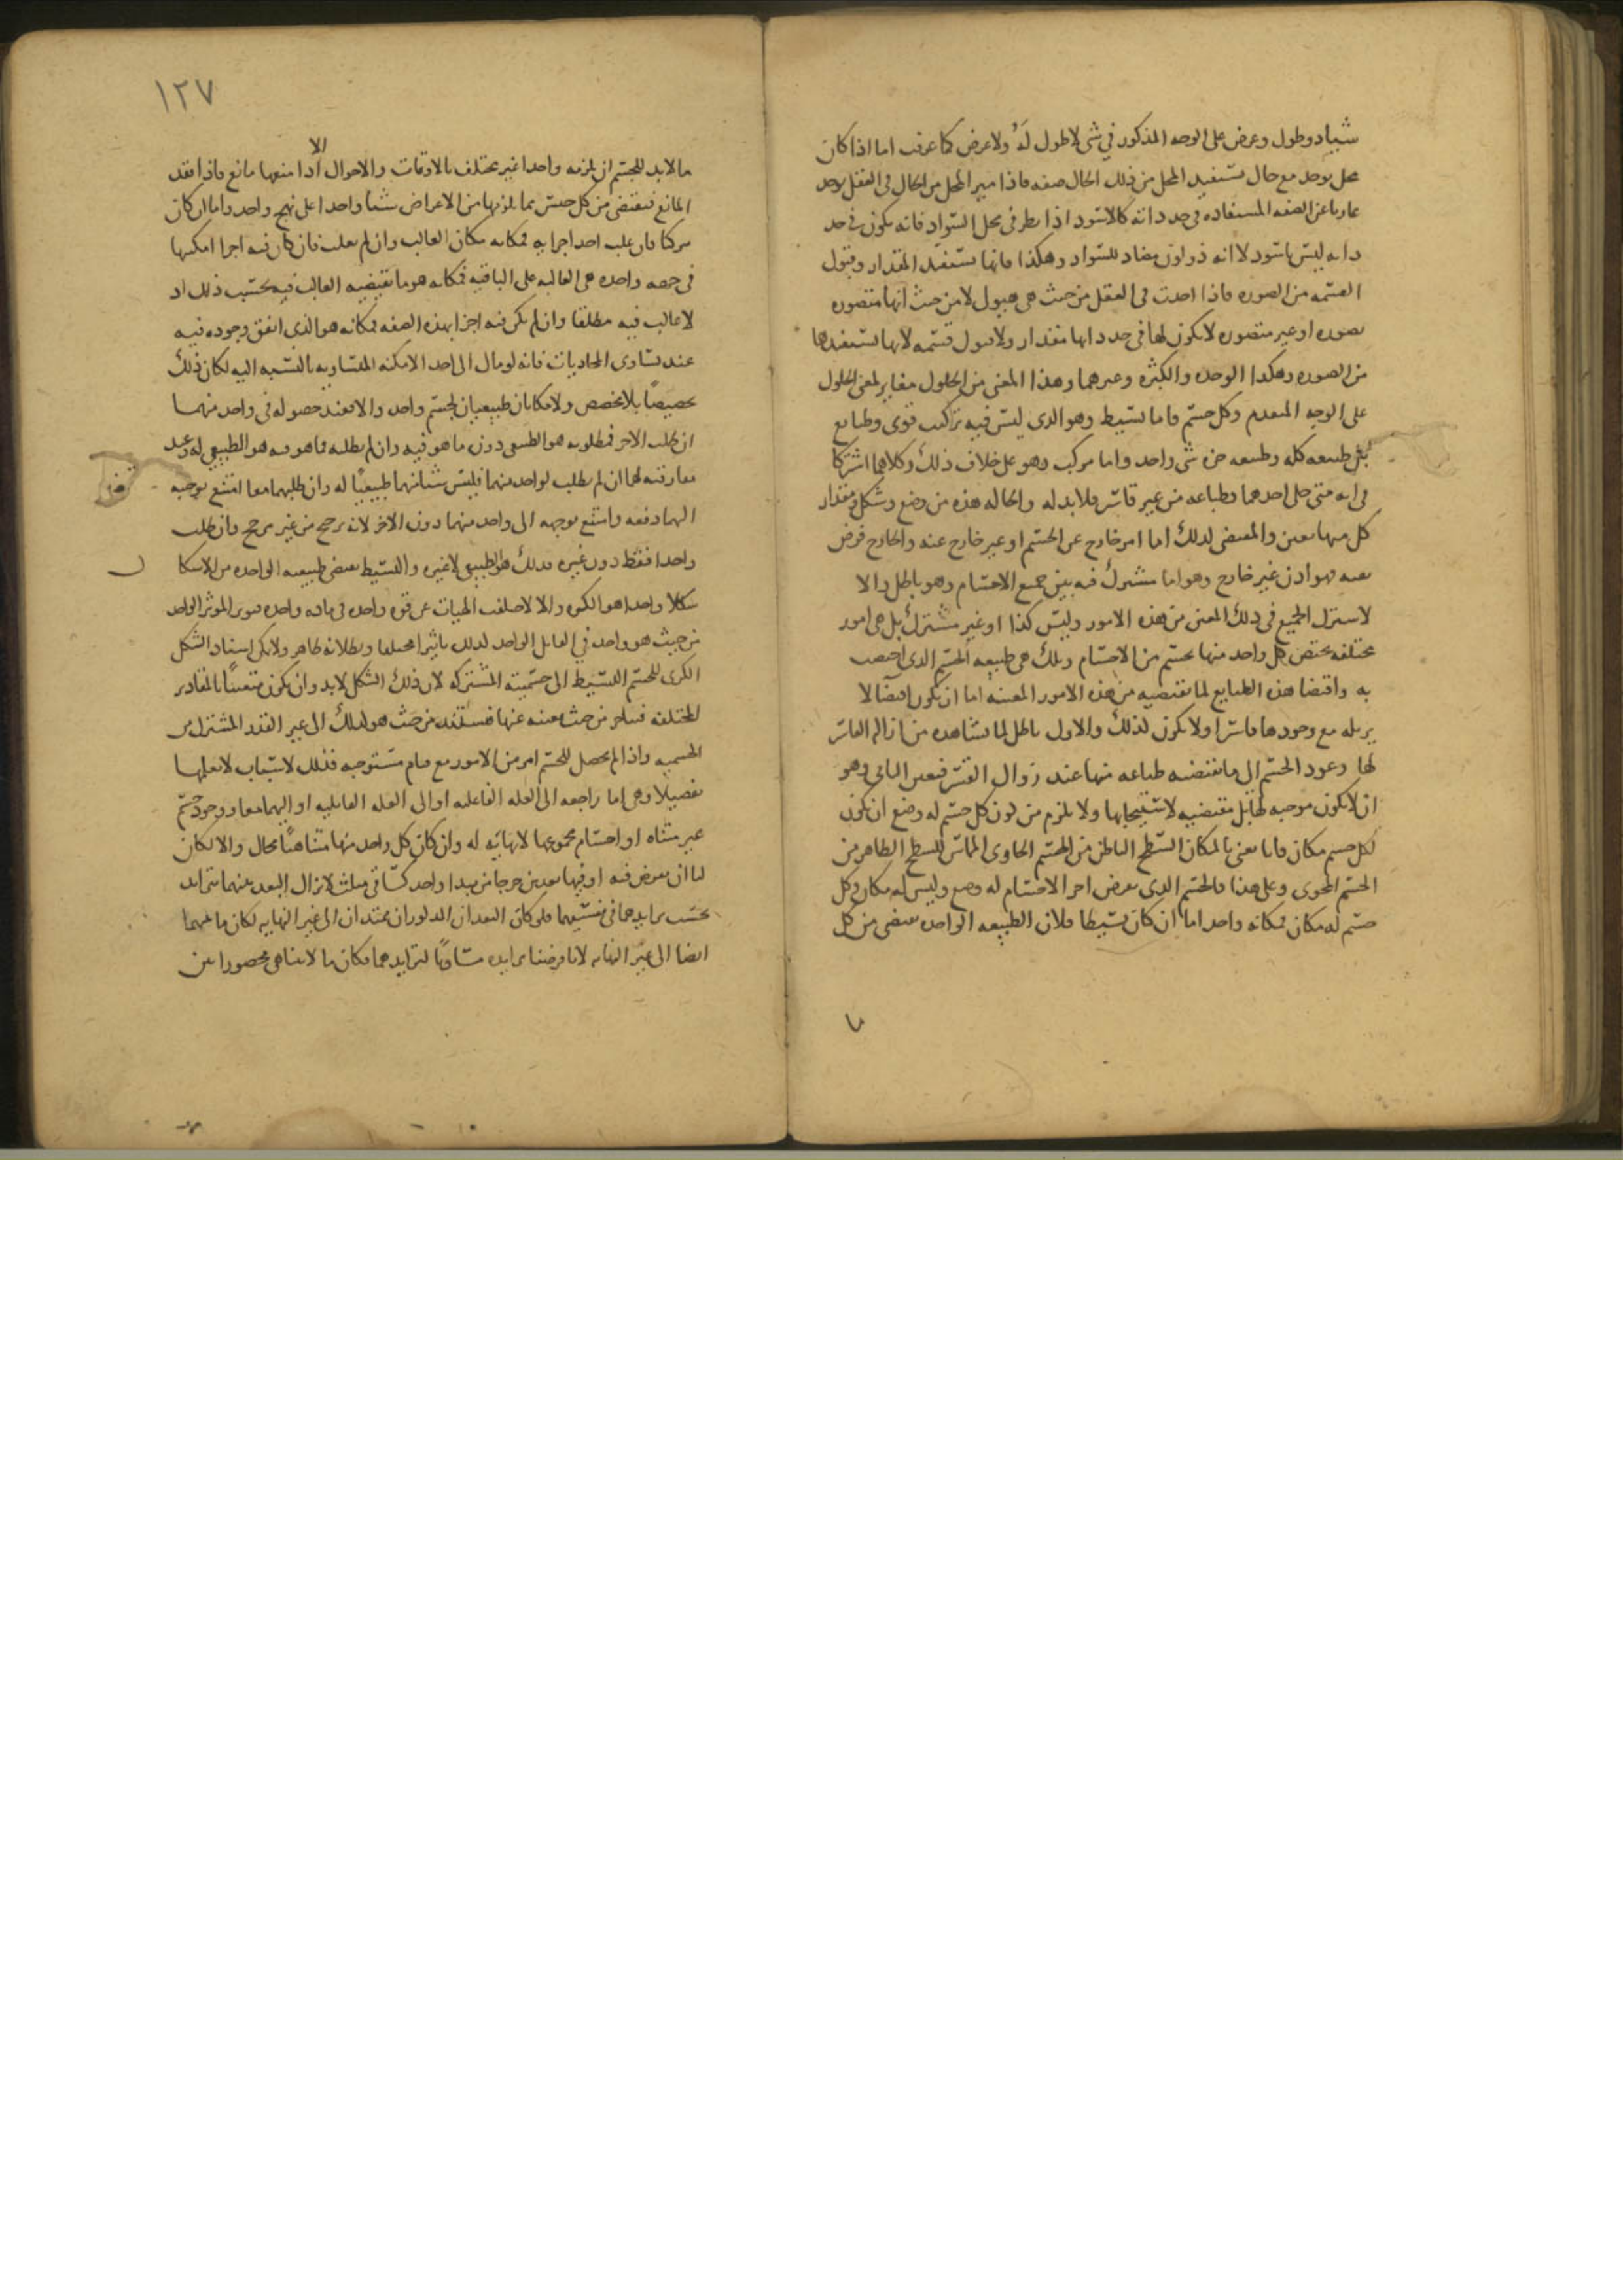 شياد وطول وعرض على الوجه المذكور في شى لا طول له ولا عرض كما عرفت اما اذا كان
محل يوجد مع حال تستفيد المحل من ذلك الحال صفه فاذا ميز المحل من الحال فى العقل يوجد
عاريا عن الصفه المستفاده فى حد ذاته كالاسود اذا نظر فى محل السواد فانه يكون فى حد
ذاته ليس باسود لا انه ذو لون مضاد للسواد وهكذا فانها تستفيد المقدار وقبول
القسمه من الصوره فاذا اخذت فى العقل من حيث هى هيولى لا من حيث انها متصوره
بصوره او غير متصوره لا يكون لها فى حد ذاتها مقدار ولا قبول قسمه لانها تستفيدها
من الصوره وهكذا الوحده والكثره وغيرهما وهذا المعنى من الحلول مغاير لمعنى الحلول
على الوجه المتقدم وكل جسم فاما بسيط وهو الذى ليس فيه تركيب قوى وطبايع
بل طبيعه كله وطبيعه جزه شى واحد واما مركب وهو على خلاف ذلك وكلاهما اشتركا
فى انه متى خلى احدهما وطباعه من غير قاسر فلا بد له والحاله هذه من وضع وشكل ومقدار
كل منها معين والمقتضى لذلك اما امر خارج عن الجسم او غير خارج عنه والخارج فرض
عدمه فهو اذن غير خارج وهو اما مشترك فيه بين جميع الاجسام وهو باطل والا
لاشترك الجميع فى ذلك المعين من هذه الامور وليس كذا او غير مشترك بل هى امور
مختلفه يختص كل واحد منها بجسم من الاجسام وتلك هى طبيعه الجسم الذى اختصت
به واقتضا هذه الطبايع لما تقتضيه من هذه الامور المعينه اما ان يكون اقتضا لا
يزيله مع وجودها قاسرا ولا يكون لذلك والاول باطل لما نشاهده من ازاله القاسر
لها وعود الجسم الى ما تقتضيه طباعه منها عند زوال القسر فتعين الثانى وهو
ان لا يكون موجبه لها بل مقتضيه لاستيجابها ولا يلزم من كون كل جسم له وضع ان يكون
لكل جسم مكان فانا نعنى بالمكان السطح الباطن من الجسم الحاوى المماس للسطح الظاهر من
الجسم المحوى وعلى هذا فالجسم الذى نفرض اخر الاجسام له وضع وليس له مكان وكل
جسم له مكان فمكانه واحد اما ان كان بسيطا فلان الطبيعه الواحده تقتضى من كل
١٢٧
الا
ما لابد للجسم ان يلزمه واحدا غير مختلف بالاوقات والاحوال اذا منعها مانع فاذا فقد
المانع فتقتضى من كل جنس مما يلزمها من الاعراض شيا واحدا على نهج واحد واما ان كان
مركبا فان غلب احد اجزايه فمكانه مكان الغالب وان لم يغلب فان كان فيه اجزا امكنتها
فى جهه واحده هى الغالبه على الباقيه فمكانه هو ما يقتضيه الغالب فيه بحسب ذلك اذ
لا غالب فيه مطلقا وان لم يكن فيه اجزا بهذه الصفه فمكانه هو الذى اتفق وجوده فيه
عند تساوى المحاذيات فانه لو مال الى احد الامكنه المتساويه بالنسبه اليه لكان ذلك
تخصيصا بلا مخصص ولا مكانان طبيعيان لجسم واحد والا فعند حصوله فى واحد منهما
ان طلب الاخر فمطلوبه هو الطبيعى دون ما هو فيه وان لم يطلبه فما هو فيه هو الطبيعى له وعند
مفارقته لهما ان لم يطلب لواحد منهما فليس شيا منهما طبيعيا له وان طلبهما معا امتنع توجهه
اليهما دفعه وامتنع توجهه الى واحد منهما دون الاخر لانه ترجح من غير مرجح وان طلب
واحدا فقط دون غيره فذلك هو الطبيعى لا غيره والبسيط تقتضى طبيعته الواحده من الاشكا
شكلا واحدا هو الكره والا لاختلفت الهيات عن قوه واحده فى ماده واحده فيوثر الموثر الواحد
من حيث هو واحد فى القابل الواحد لذلك تاثيرا مختلفا وبطلانه ظاهر ولا يمكن اسناد الشكل
الكرى للجسم البسيط الى جسميته المشتركه لان ذلك الشكل لابد وان يكون متعينا بالمقادير
المختلفه
الجسميه واذا لم يحصل للجسم امر من الامور مع قيام مستوجبه فذلك لاسباب لا نعلمها
تفصيلا وهى اما راجعه الى العله الفاعليه او الى العله القابليه او اليهما معا ووجود جسم
غير متناه او اجسام مجموعها لا نهايه له وان كان كل واحد منها متناهيا محال والا لكان
لنا ان نفرض فيه او فيها بعدين خرجا من مبدا واحد كساقى مثلث لا يزال البعد بينهما يتزايد
بحسب تزايدهما فى نفسيهما فلو كان البعدان المذكوران ممتدان الى غير النهايه لكان ما بينهما
ايضا الى غير النهايه لانا فرضنا تزايده مساويا لتزايدهما فكان ما لا يتناهى محصورا بين